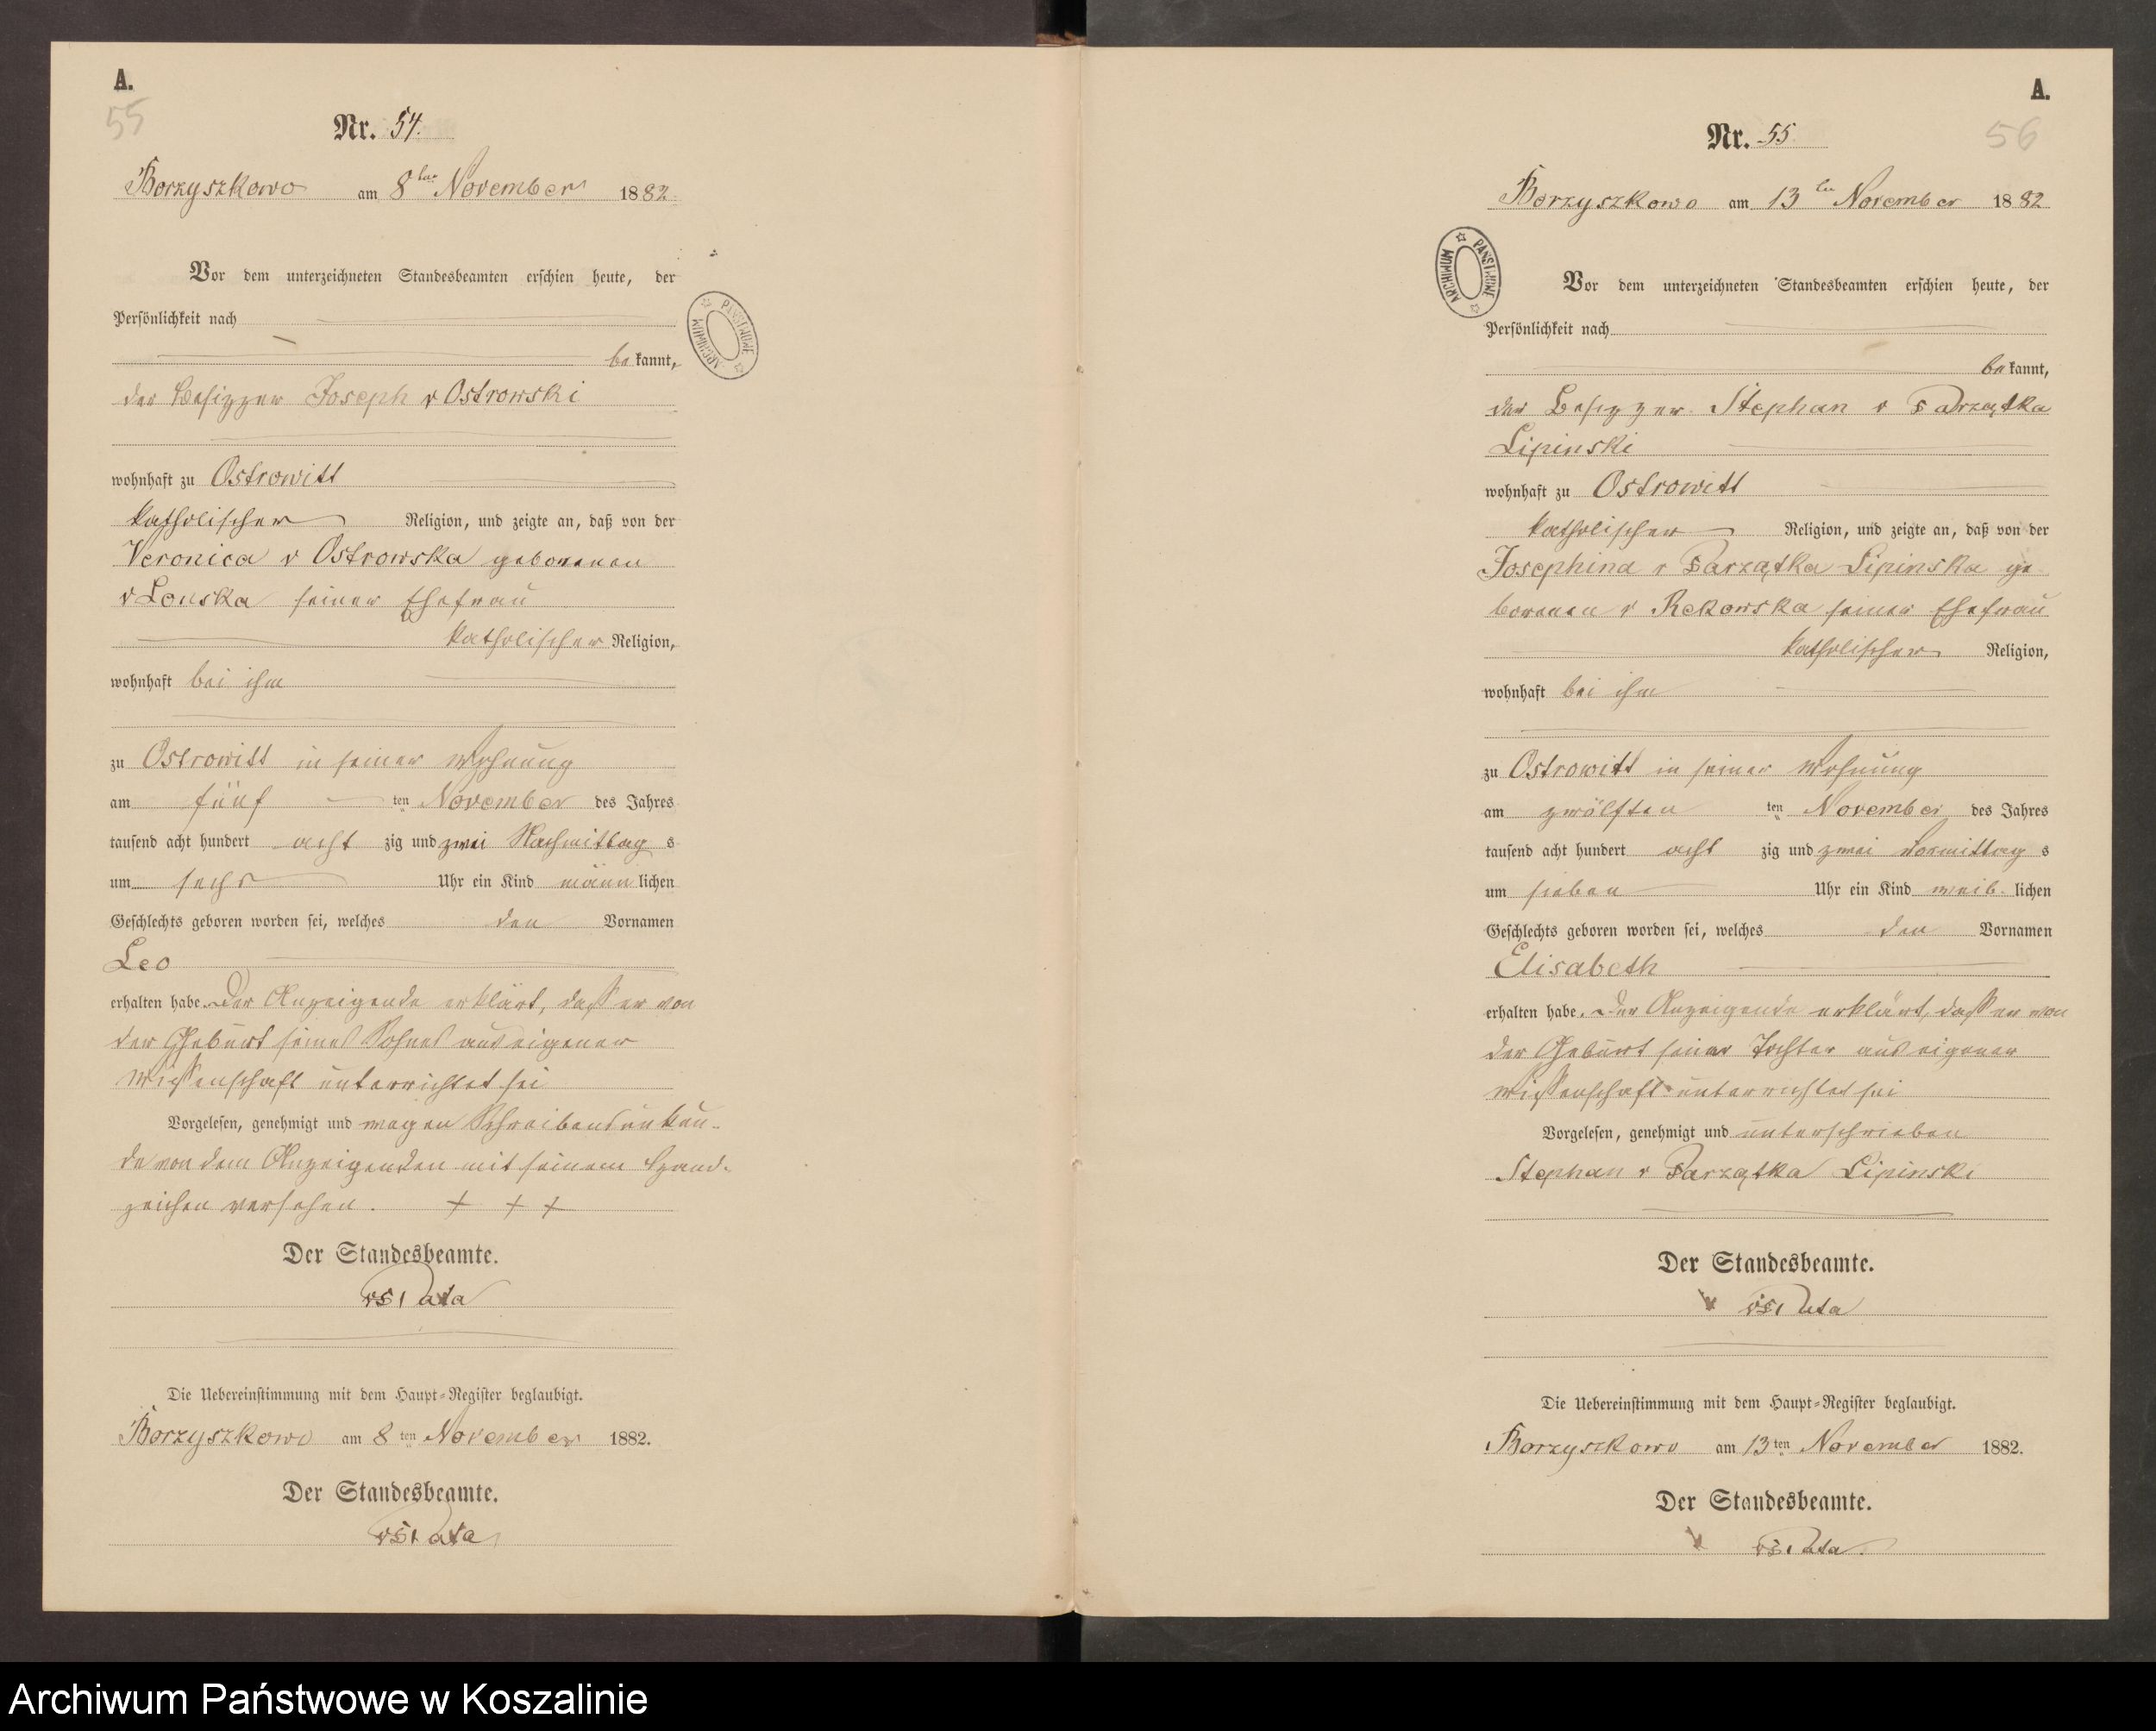 A.
55
Nr. 54.
Borzyszkowo am 8ten November 1882
Vor dem unterzeichneten Standesbeamten erschien heute, der
Persönlichkeit nach
bekannt,
der Besizzer Joseph v Ostrowski
wohnhaft zu Ostrowitt
katholischer Religion, und zeigte an, daß von der
Veronica v Ostrowska geborenen
v Lonska seiner Ehefrau
katholischer Religion,
wohnhaft bei ihm
zu Ostrowitt in seiner Wohnung
am fünf ten November des Jahres
tausend acht hundert acht zig und zwei Nachmittag s
um sechs Uhr ein Kind männlichen
Geschlechts geboren worden sei, welches den Vornamen
Leo
erhalten habe. Der Anzeigende erklärt, daß er von
der Geburt seines Sohnes aus eigener
Wissenschaft unterrichtet sei
Vorgelesen, genehmigt und wegen Schreibensunkun-
de von dem Anzeigenden mit seinem Hand-
zeichen versehen. + + +
Der Standesbeamte.
Die Uebereinstimmung mit dem Haupt-Register beglaubigt.
Borzyszkowo am 8ten November 1882.
Der Standesbeamte.
A.
56
Nr. 55.
Borzyszkowo am 13ten November 1882
Vor dem unterzeichneten Standesbeamten erschien heute, der
Persönlichkeit nach
bekannt,
der Besizzer Stephan v
Lipinski
wohnhaft zu Ostrowitt
katholischer Religion, und zeigte an, daß von der
Josephina v Lipinska ge-
borenen v Rekowska seiner Ehefrau
katholischer Religion,
wohnhaft bei ihm
zu Ostrowitt in seiner Wohnung
am zwölften ten November des Jahres
tausend acht hundert acht zig und zwei Vormittag s
um sieben Uhr ein Kind weib. lichen
Geschlechts geboren worden sei, welches den Vornamen
Elisabeth
erhalten habe. Der Anzeigende erklärt, daß er von
der Geburt seiner Tochter aus eigener
Wissenschaft unterrichtet sei
Vorgelesen, genehmigt und unterschrieben
Stephan v Lipinski
Der Standesbeamte.
Die Uebereinstimmung mit dem Haupt-Register beglaubigt.
Borzyszkowo am 13ten November 1882.
Der Standesbeamte.
ARCHIWUM PAŃSTWOWE
ARCHIWUM PAŃSTWOWE
Archiwum Państwowe w Koszalinie